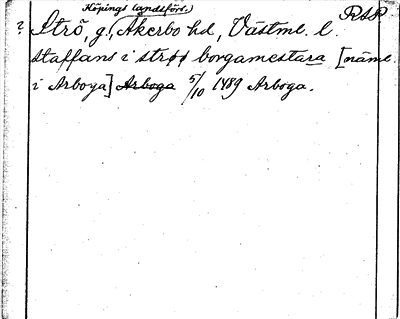 Köpings landsförs.) RSP
? Strö, g!, Akerbo hd, Västml. l.
staffans i strøø borgamestara [näml.
i Arboga] Arboga 5/10 1489 Arboga.